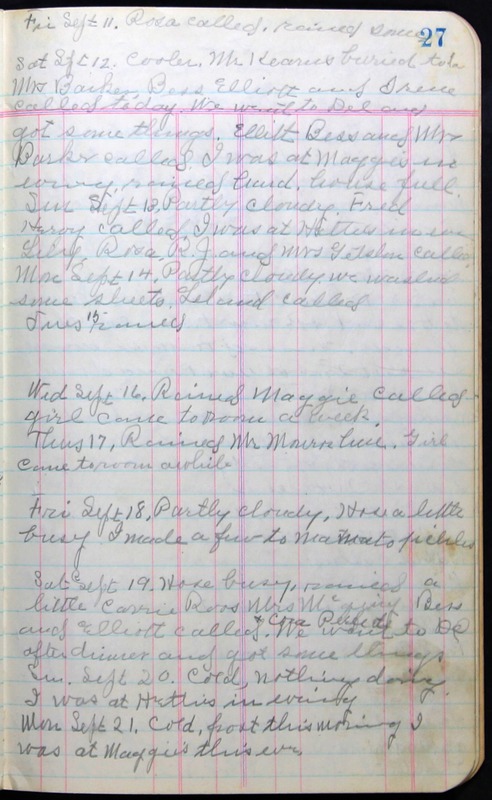 Fri Sept 11. Rosa called, rained some
27
Sat Sept 12. Cooler. Mr Kearns buried toda
Mrs Barker, Bess Elliott and Irene
called today. We went to Del and
got some things. Elliott Bess and Mrs
Barker called. I was at Maggies in
evning, rained hard. house full.
Sun Sept 13. Partly cloudy Fred
Harvy called, I was at Hatties in eve
Lily, Rosa, R.J. and Mrs called
Mon Sept 14. Partly cloudy we washed
some sheets. Leland called
Tues 15 rained
Wed Sept 16. Rained Maggie called
girl come to room a week.
Thus 17, Rained Mr Monroe here. Girl
come to room awhile
Fri Sept 18, Partly cloudy, Hose a little
busy I made a few to ma mato pickles
Sat Sept 19. Hose busy, rained a
little Carrie Roos Mrs Bess
& Cora
and Elliott called. We went to Del
after dinner and got some things
Sun. Sept 20. Cold, nothing doing
I was at Hatties in evning
Mon Sept 21. Cold, frost this morning I
was at Maggies this eve